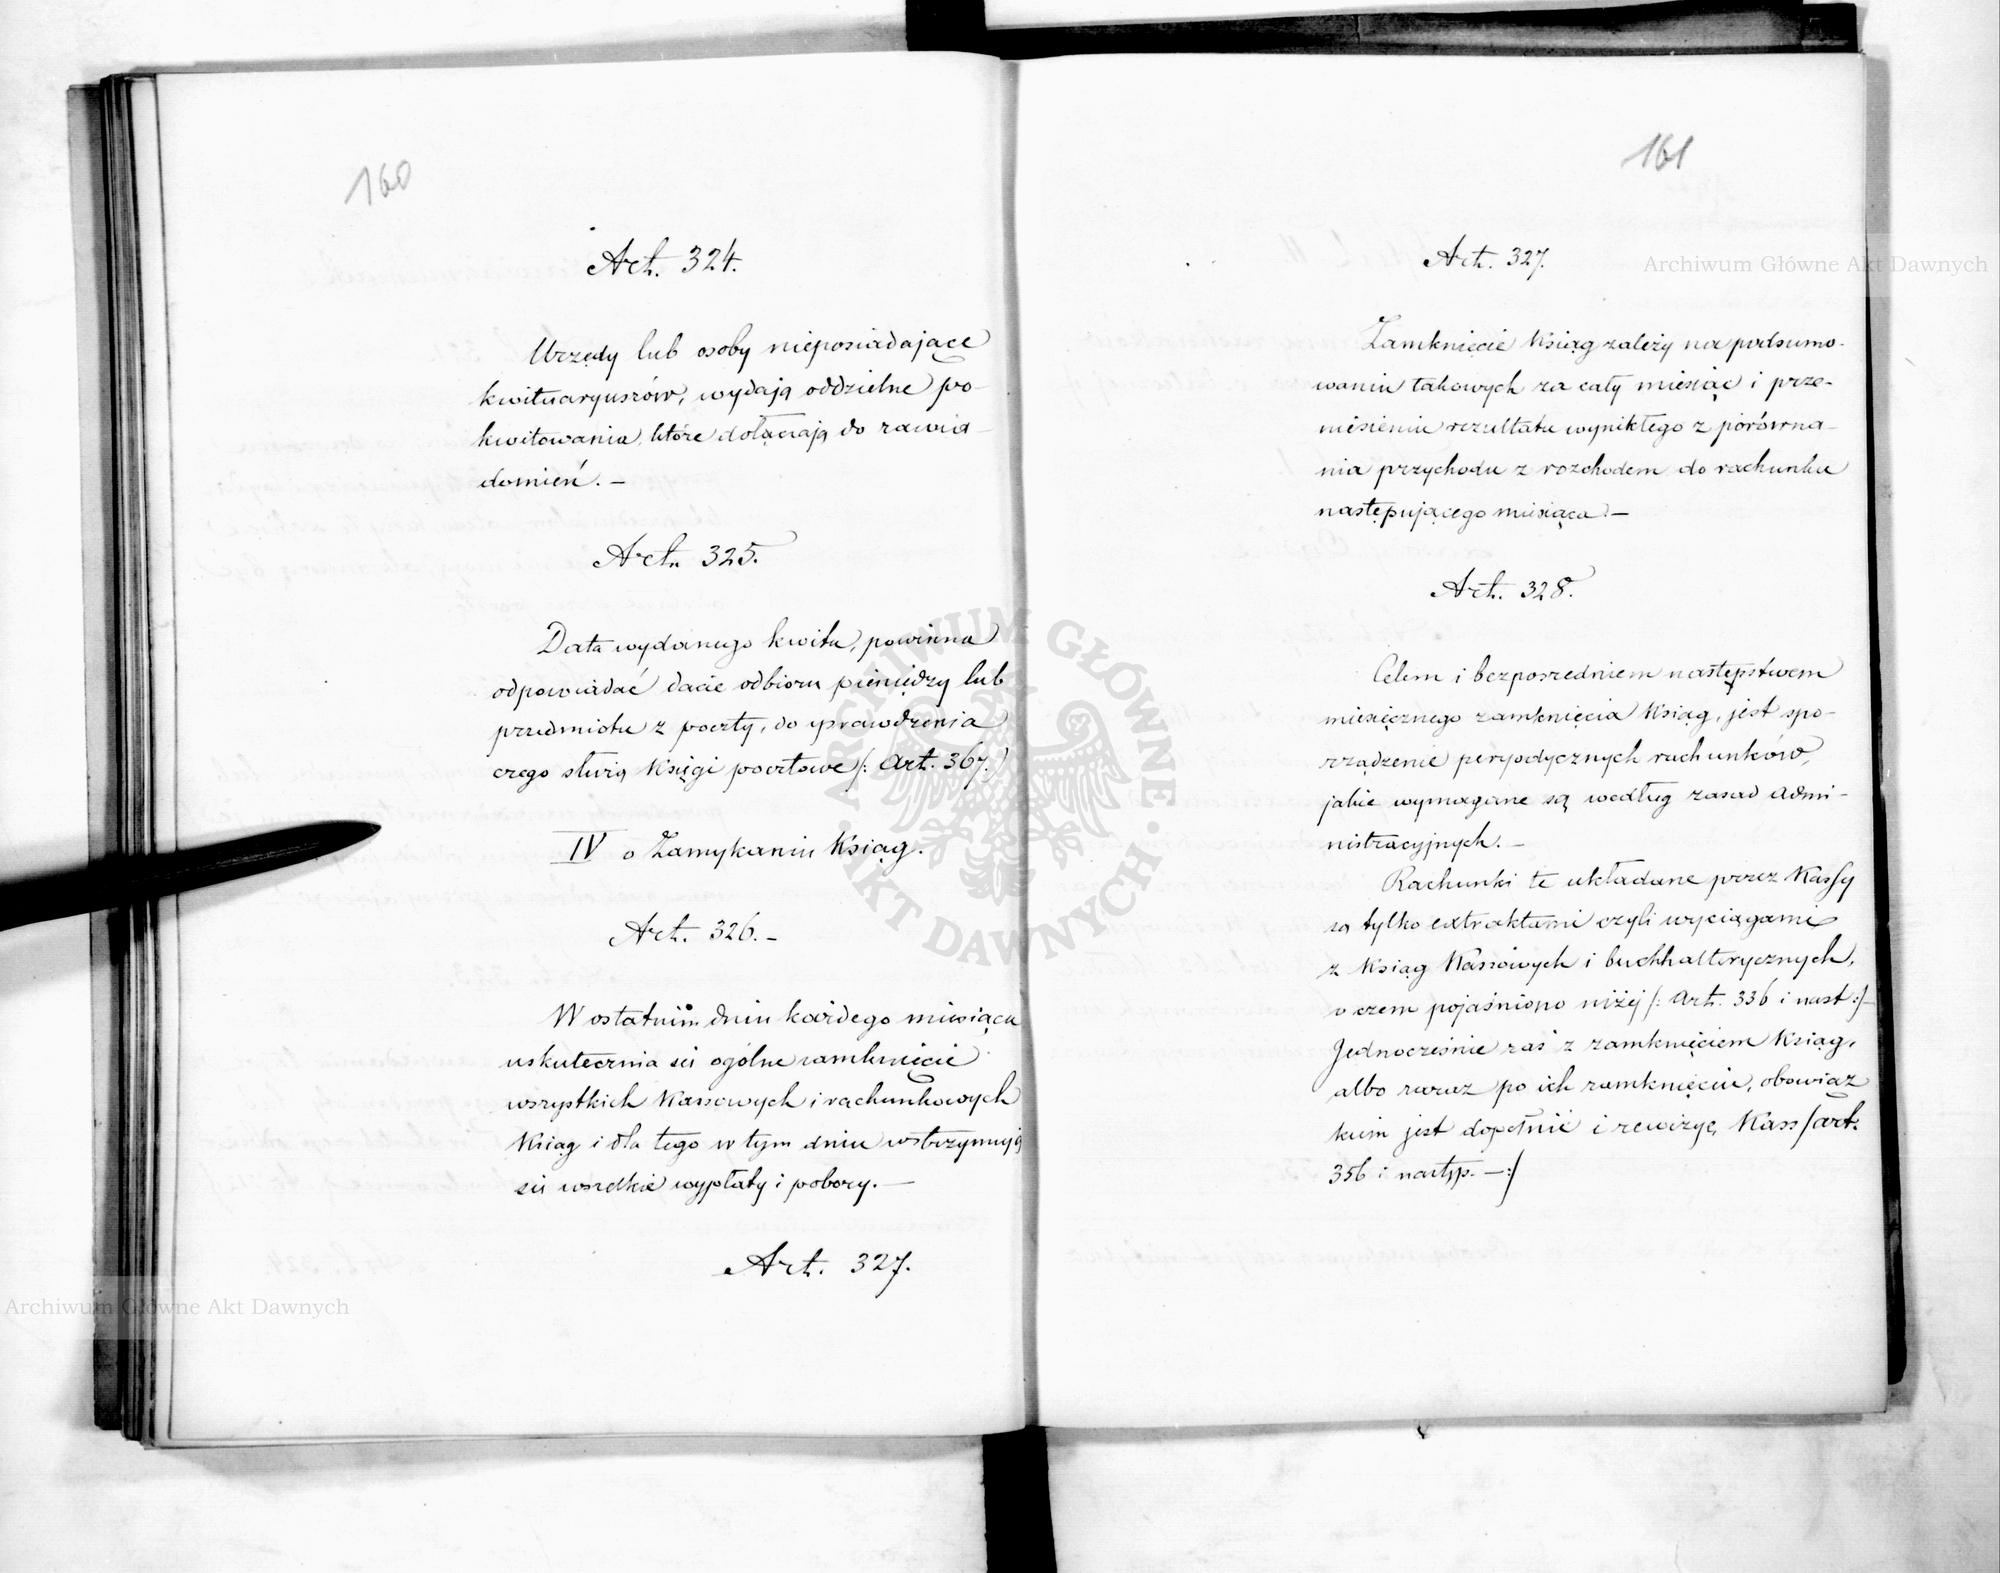 160
Art. 324.
Urzędy lub osoby nieposiadające
kwitaryuszów, wydają oddzielne po-
kwitowania, które dołączają do zawia-
domień. —
Art. 325.
Data wydanego kwitu, powinna
odpowiadać dacie odbioru pieniędzy lub
przedmiotu z poczty, do sprawdzenia
czego służą Księgi pocztowe /: Art. 367.)
IV o Zamykaniu Ksiąg.
Art. 326. —
W ostatnim dniu każdego miesiąca
uskutecznia się ogólne zamknięcie
wszystkich Kassowych i rachunkowych
Ksiąg i dla tego w tym dniu wstrzymują
się wszelkie wypłaty i pobory. —
Art. 327.
161
Art. 327.
Zamknięcie Ksiąg zależy na podsumo-
waniu takowych za cały miesiąc i prze-
niesieniu rezultatu wynikłego z porówna-
nia przychodu z rozchodem do rachunku
następującego miesiąca. —
Art. 328.
Celem i bezpośredniem następstwem
miesięcznego zamknięcia Ksiąg, jest spo-
rządzenie peryodycznych rachunków,
jakie wymagane są według zasad admi-
nistracyjnych. —
Rachunki te układane przez Kassy
są tylko extraktami czyli wyciągami
z Ksiąg Kassowych i buchhalterycznych,
o czem pojaśniono niżej /: Art. 336 i nast :/—
Jednocześnie zaś z zamknięciem Ksiąg,
albo zaraz po ich zamknięciu, obowiąz
kiem jest dopełnić i rewizyę Kass / art.
356 i następ. — :/
Archiwum Główne Akt Dawnych
Archiwum Główne Akt Dawnych
ARCHIWUM GŁÓWNE · AKT DAWNYCH ·